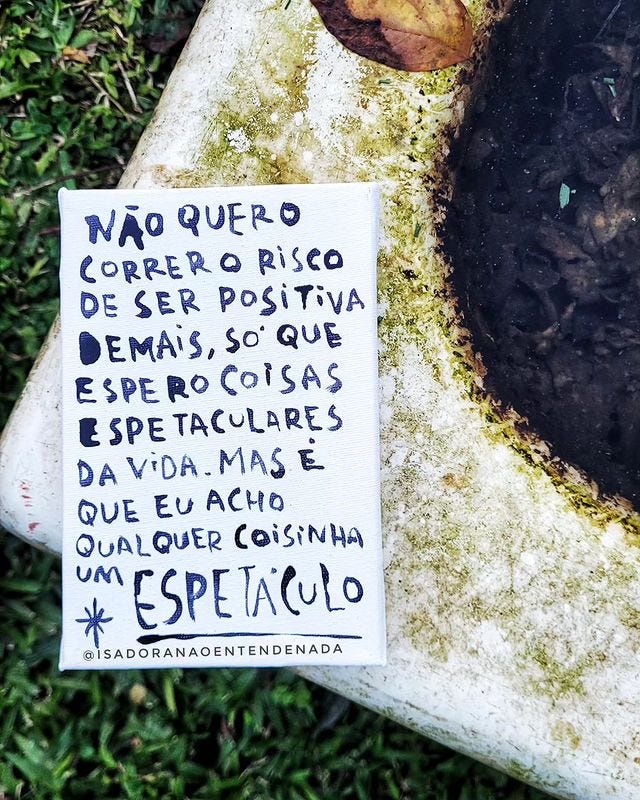 NÃO QUERO
CORRER O RISCO
DE SER POSITIVA
DEMAIS, SÓ QUE
ESPERO COISAS
ESPETACULARES
DA VIDA. MAS É
QUE EU ACHO
QUALQUER COISINHA
UM ESPETÁCULO
@ISADORANAOENTENDENADA